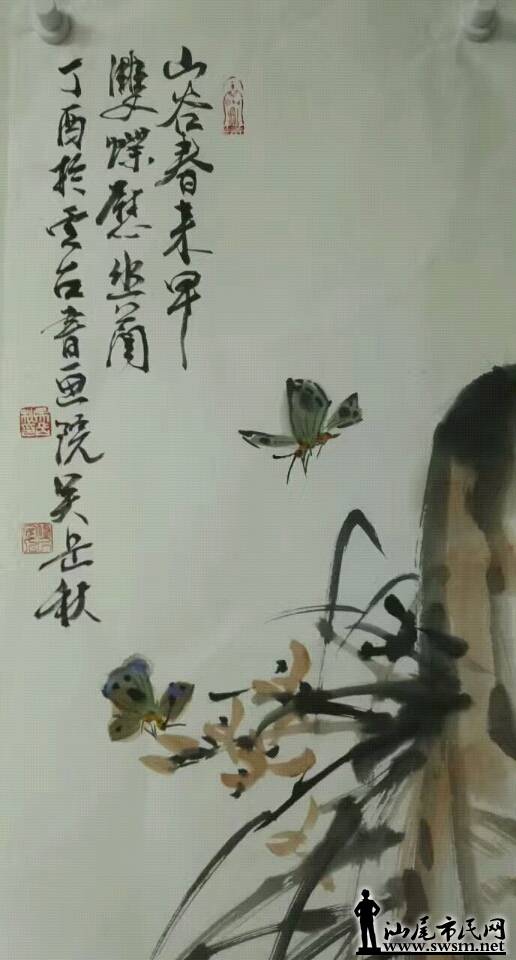 山谷春来早
雙蝶慰幽蘭
丁酉於雲古書画院吴岳秋
汕尾市民网
www.swsm.net